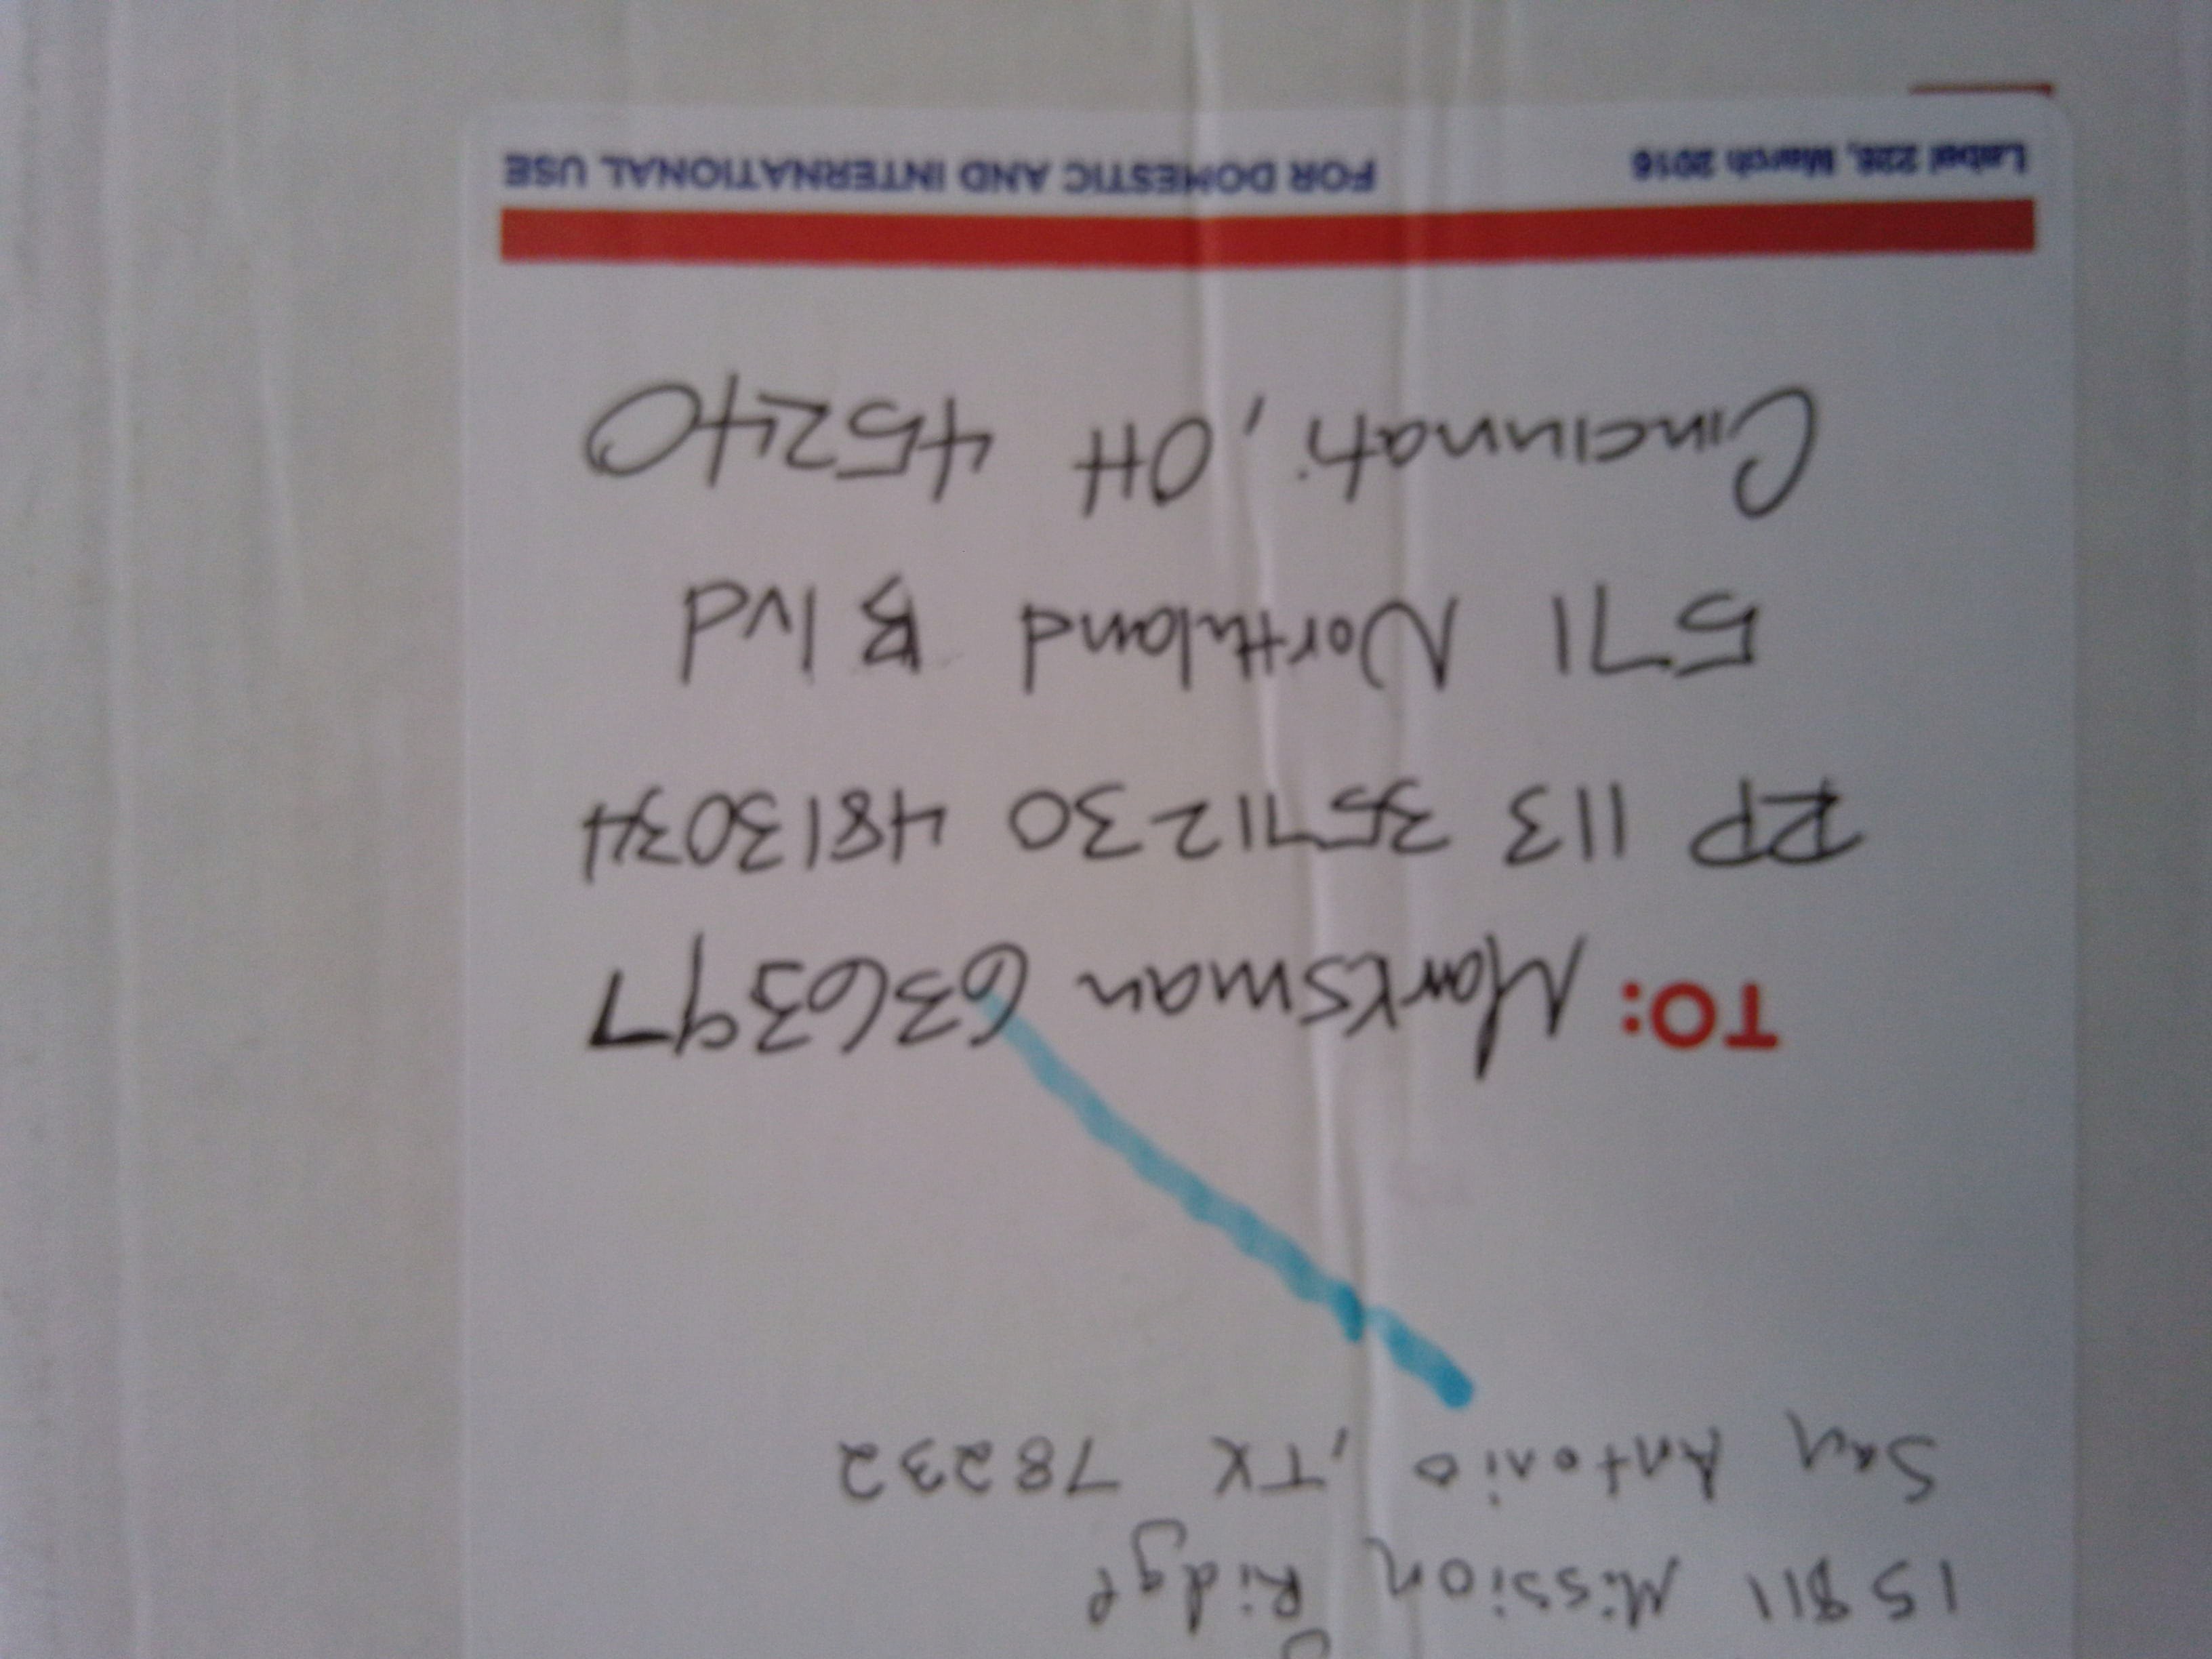 15811 Mission Ridge
San Antonio, TX 78232
TO: Marksman 636397
RP 113 35711230 4813034
571 Northland Blvd
Cincinnati, OH 45240
Label 228, March 2016 FOR DOMESTIC AND INTERNATIONAL USE